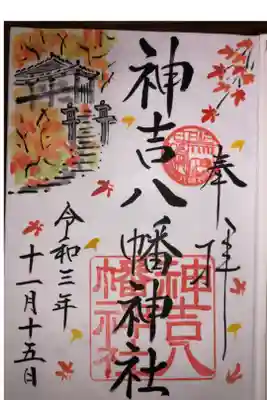 奉拝
神吉八幡神社
神吉八幡神社
令和三年
十一月十五日